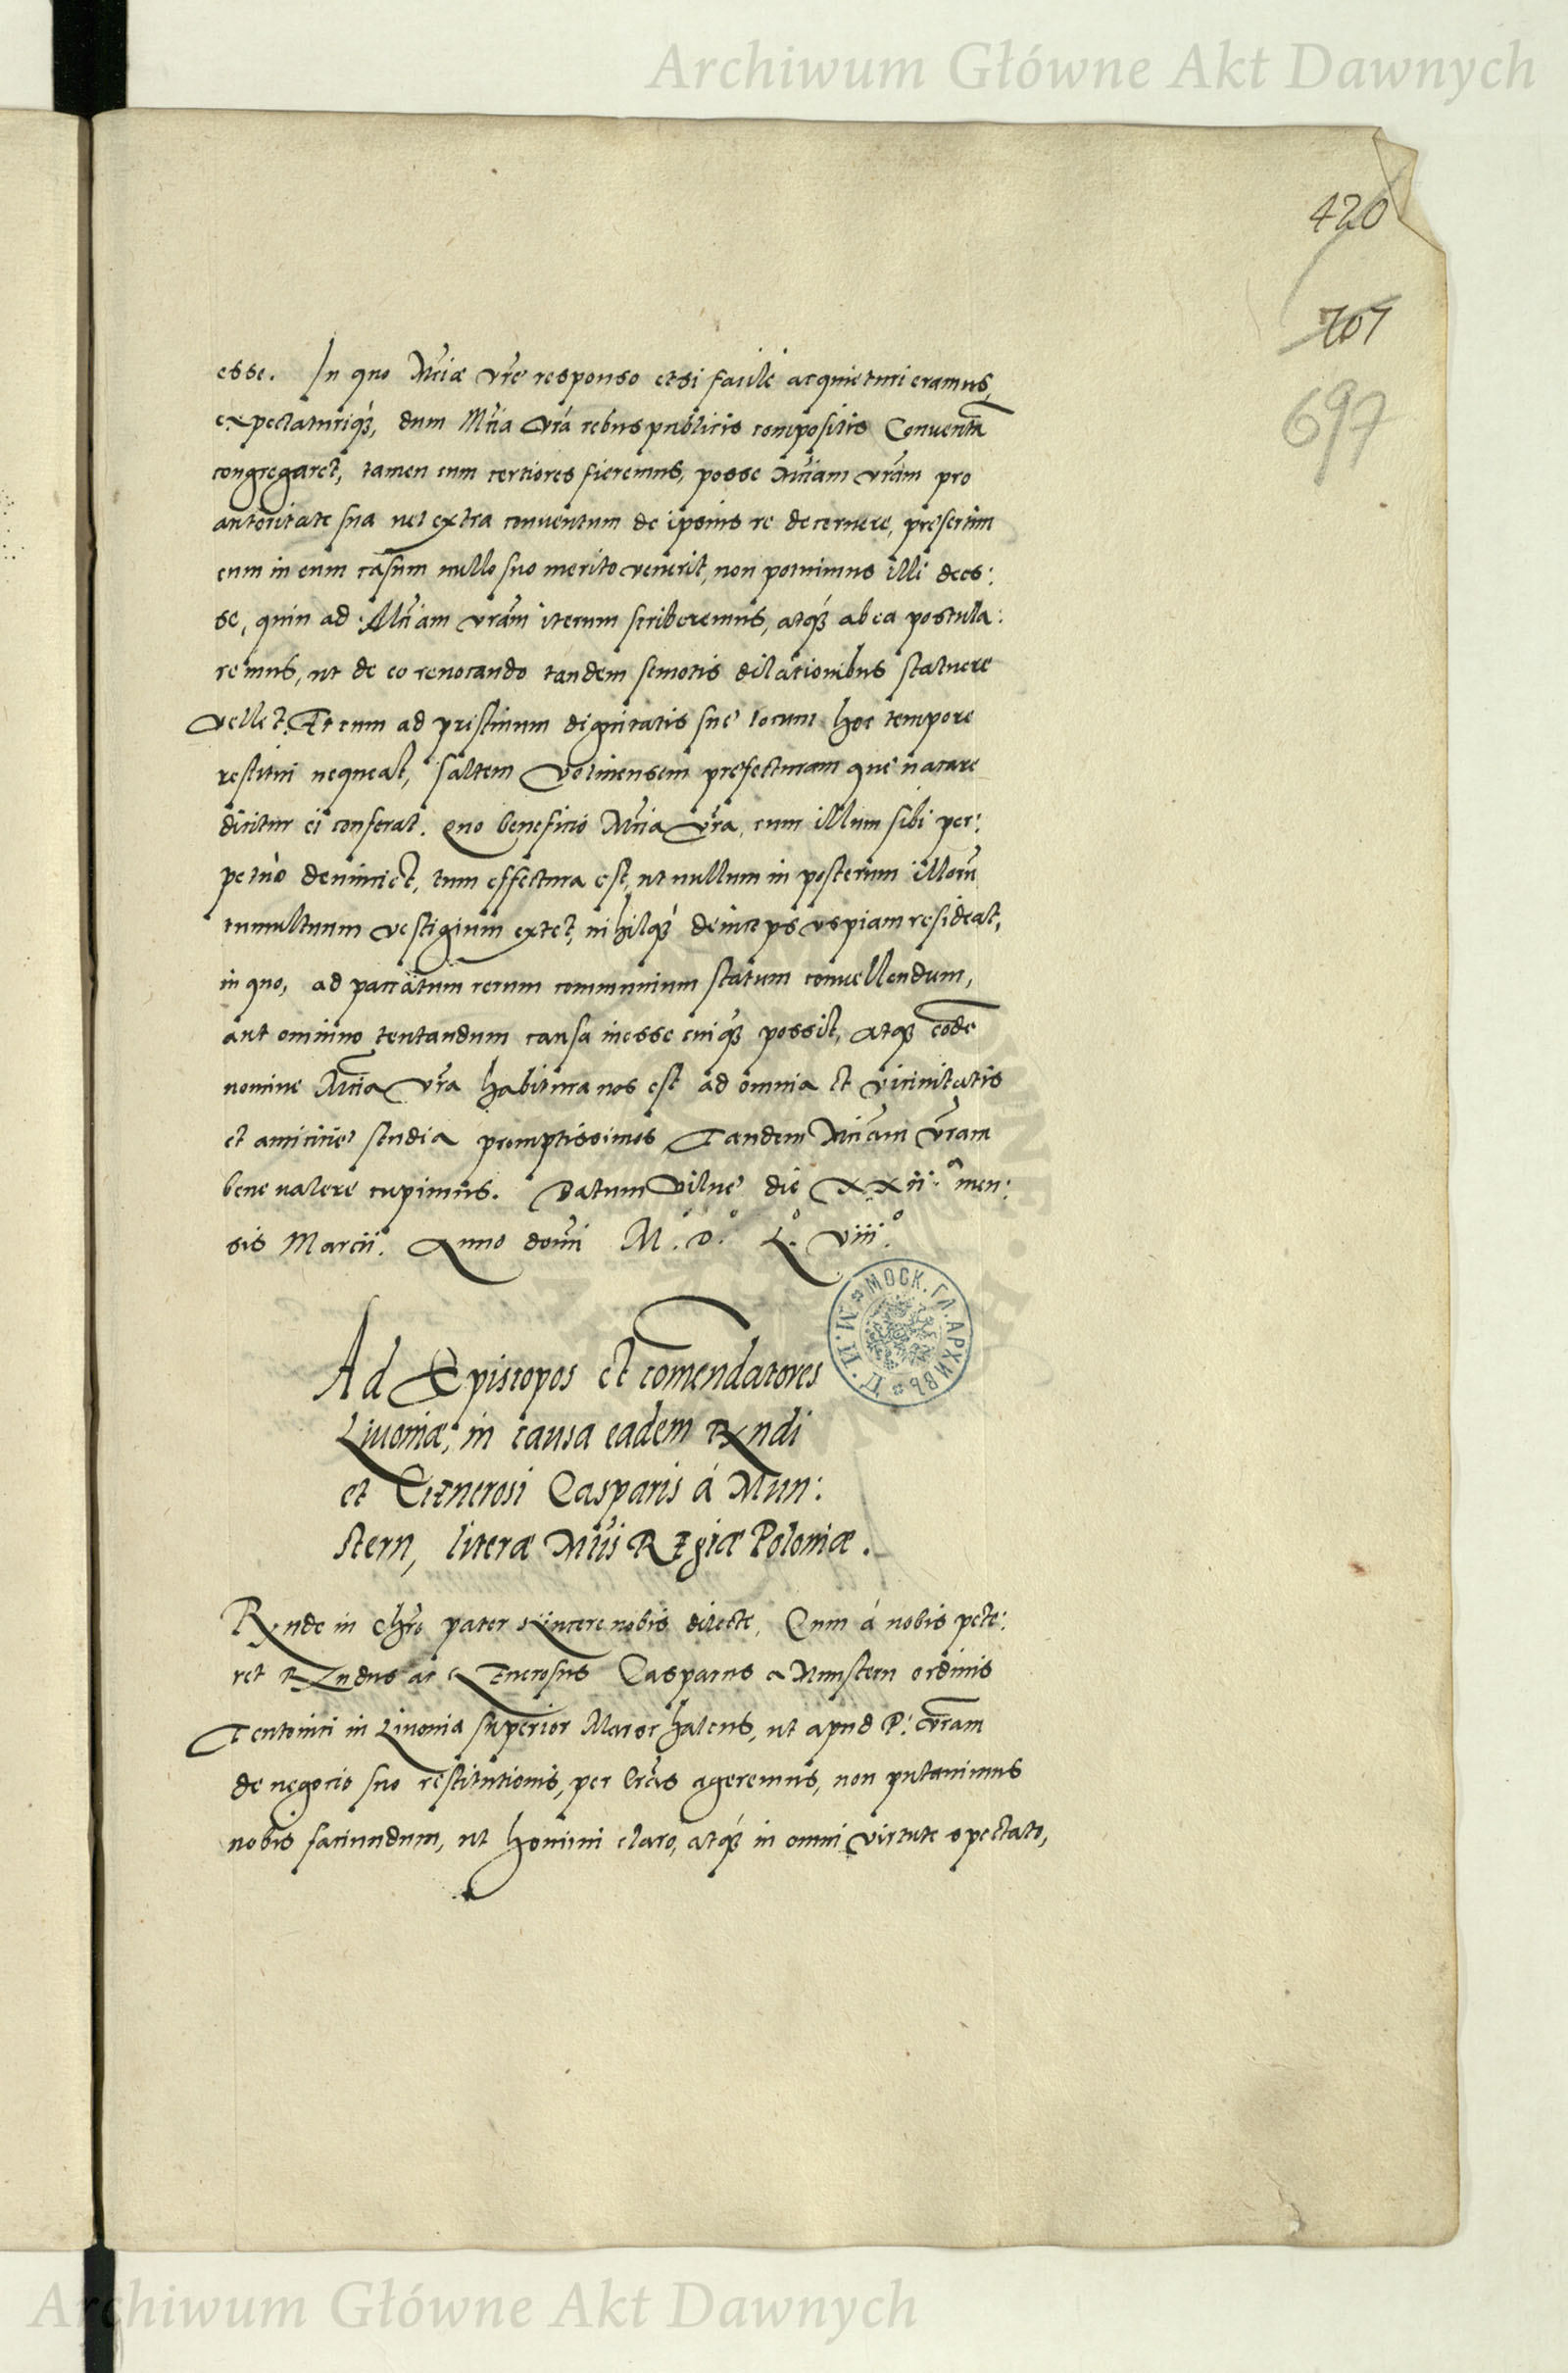 Archiwum Główne Akt Dawnych
420
701
697
esse. In quo Mtiæ vrẽ responso etsi facile acquieturi eramus,
expectaturiq3, dum Mtia vrã rebus publicis compositis Conventũ
congregaret, tamen cum certiores fieremus, posse Mtiam vrãm pro
autoritate sua uel extra conuentum de ipsius re decernere, presertim
cum in eum casum nullo suo merito venerit, non potuimus illi dees:
se, quin ad Mtiam vrãm iterum scriberemus, atq3 ab ea postula:
remus, ut de eo reuocando tandem semotis dilationibus statuere
vellet. Et cum ad pristinum dignitatis suę locum hoc tempore
restitui nequeat, saltem Volmensem prefecturam que uacare
dicitur ei conferat. quo beneficio Mtia vrã, cum illum sibi per:
petuò deuinciet, tum effectura est, ut nullum in posterum illorũ
tumultuum vestigium extet, nihilq3 deinceps vspiam resideat,
in quo, ad paccatum rerum communium statum conuellendum,
aut omnino tentandum causa inesse cuiq3 possit, atq3 eodẽ
nomine Mtia vrã habitura nos est ad omnia et vicinitatis
et amicitię studia promptissimos Tandem Mtiam vrãm
bene ualere cupimus. Datum Vilnę die XXii.ª men:
sis Marcii. Anno domĩ M.º D.º L.º viii.º
МОСК. ГЛ. АРХИВЪ М. И. Д.
Ad Episcopos et comendatores
Liuoniæ, in causa eadem Rndi
et Generosi Casparis á Mun:
stern, literæ Mtis Regiæ Poloniæ.
Rnde in Chrõ pater sincere nobis dilecte, Cum á nobis pete:
ret Rndus ac Generosus Casparus a Munstern ordinis
Teutonici in Liuonia superior Marschalcus, ut apud P: vrãm
de negocio suo restitutionis, per lrãs ageremus, non putauimus
nobis faciundum, ut homini claro, atq3 in omni virtute spectato,
Archiwum Główne Akt Dawnych